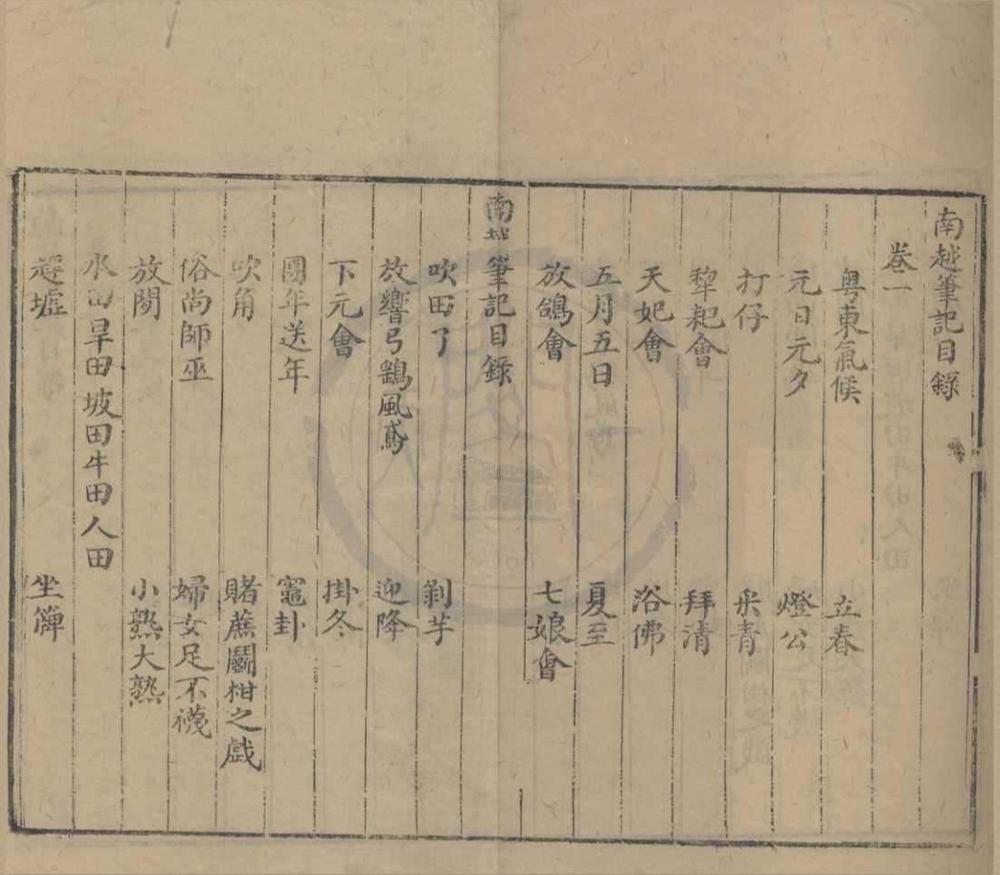 南越筆記目錄
卷一
粵東氣候 立春
元日元夕 燈公
打仔 采青
犂耙會 拜清
天妃會 浴佛
五月五日 夏至
放鴿會 七娘會
南越筆記目錄
吹田了 剥芋
放響弓鷂風鳶 迎降
下元會 掛冬
團年送年 竈卦
吹角 賭蔗鬭柑之戲
俗尚師巫 婦女足不襪
放閒 小熟大熟
水田旱田坡田牛田人田
趁墟 坐簰